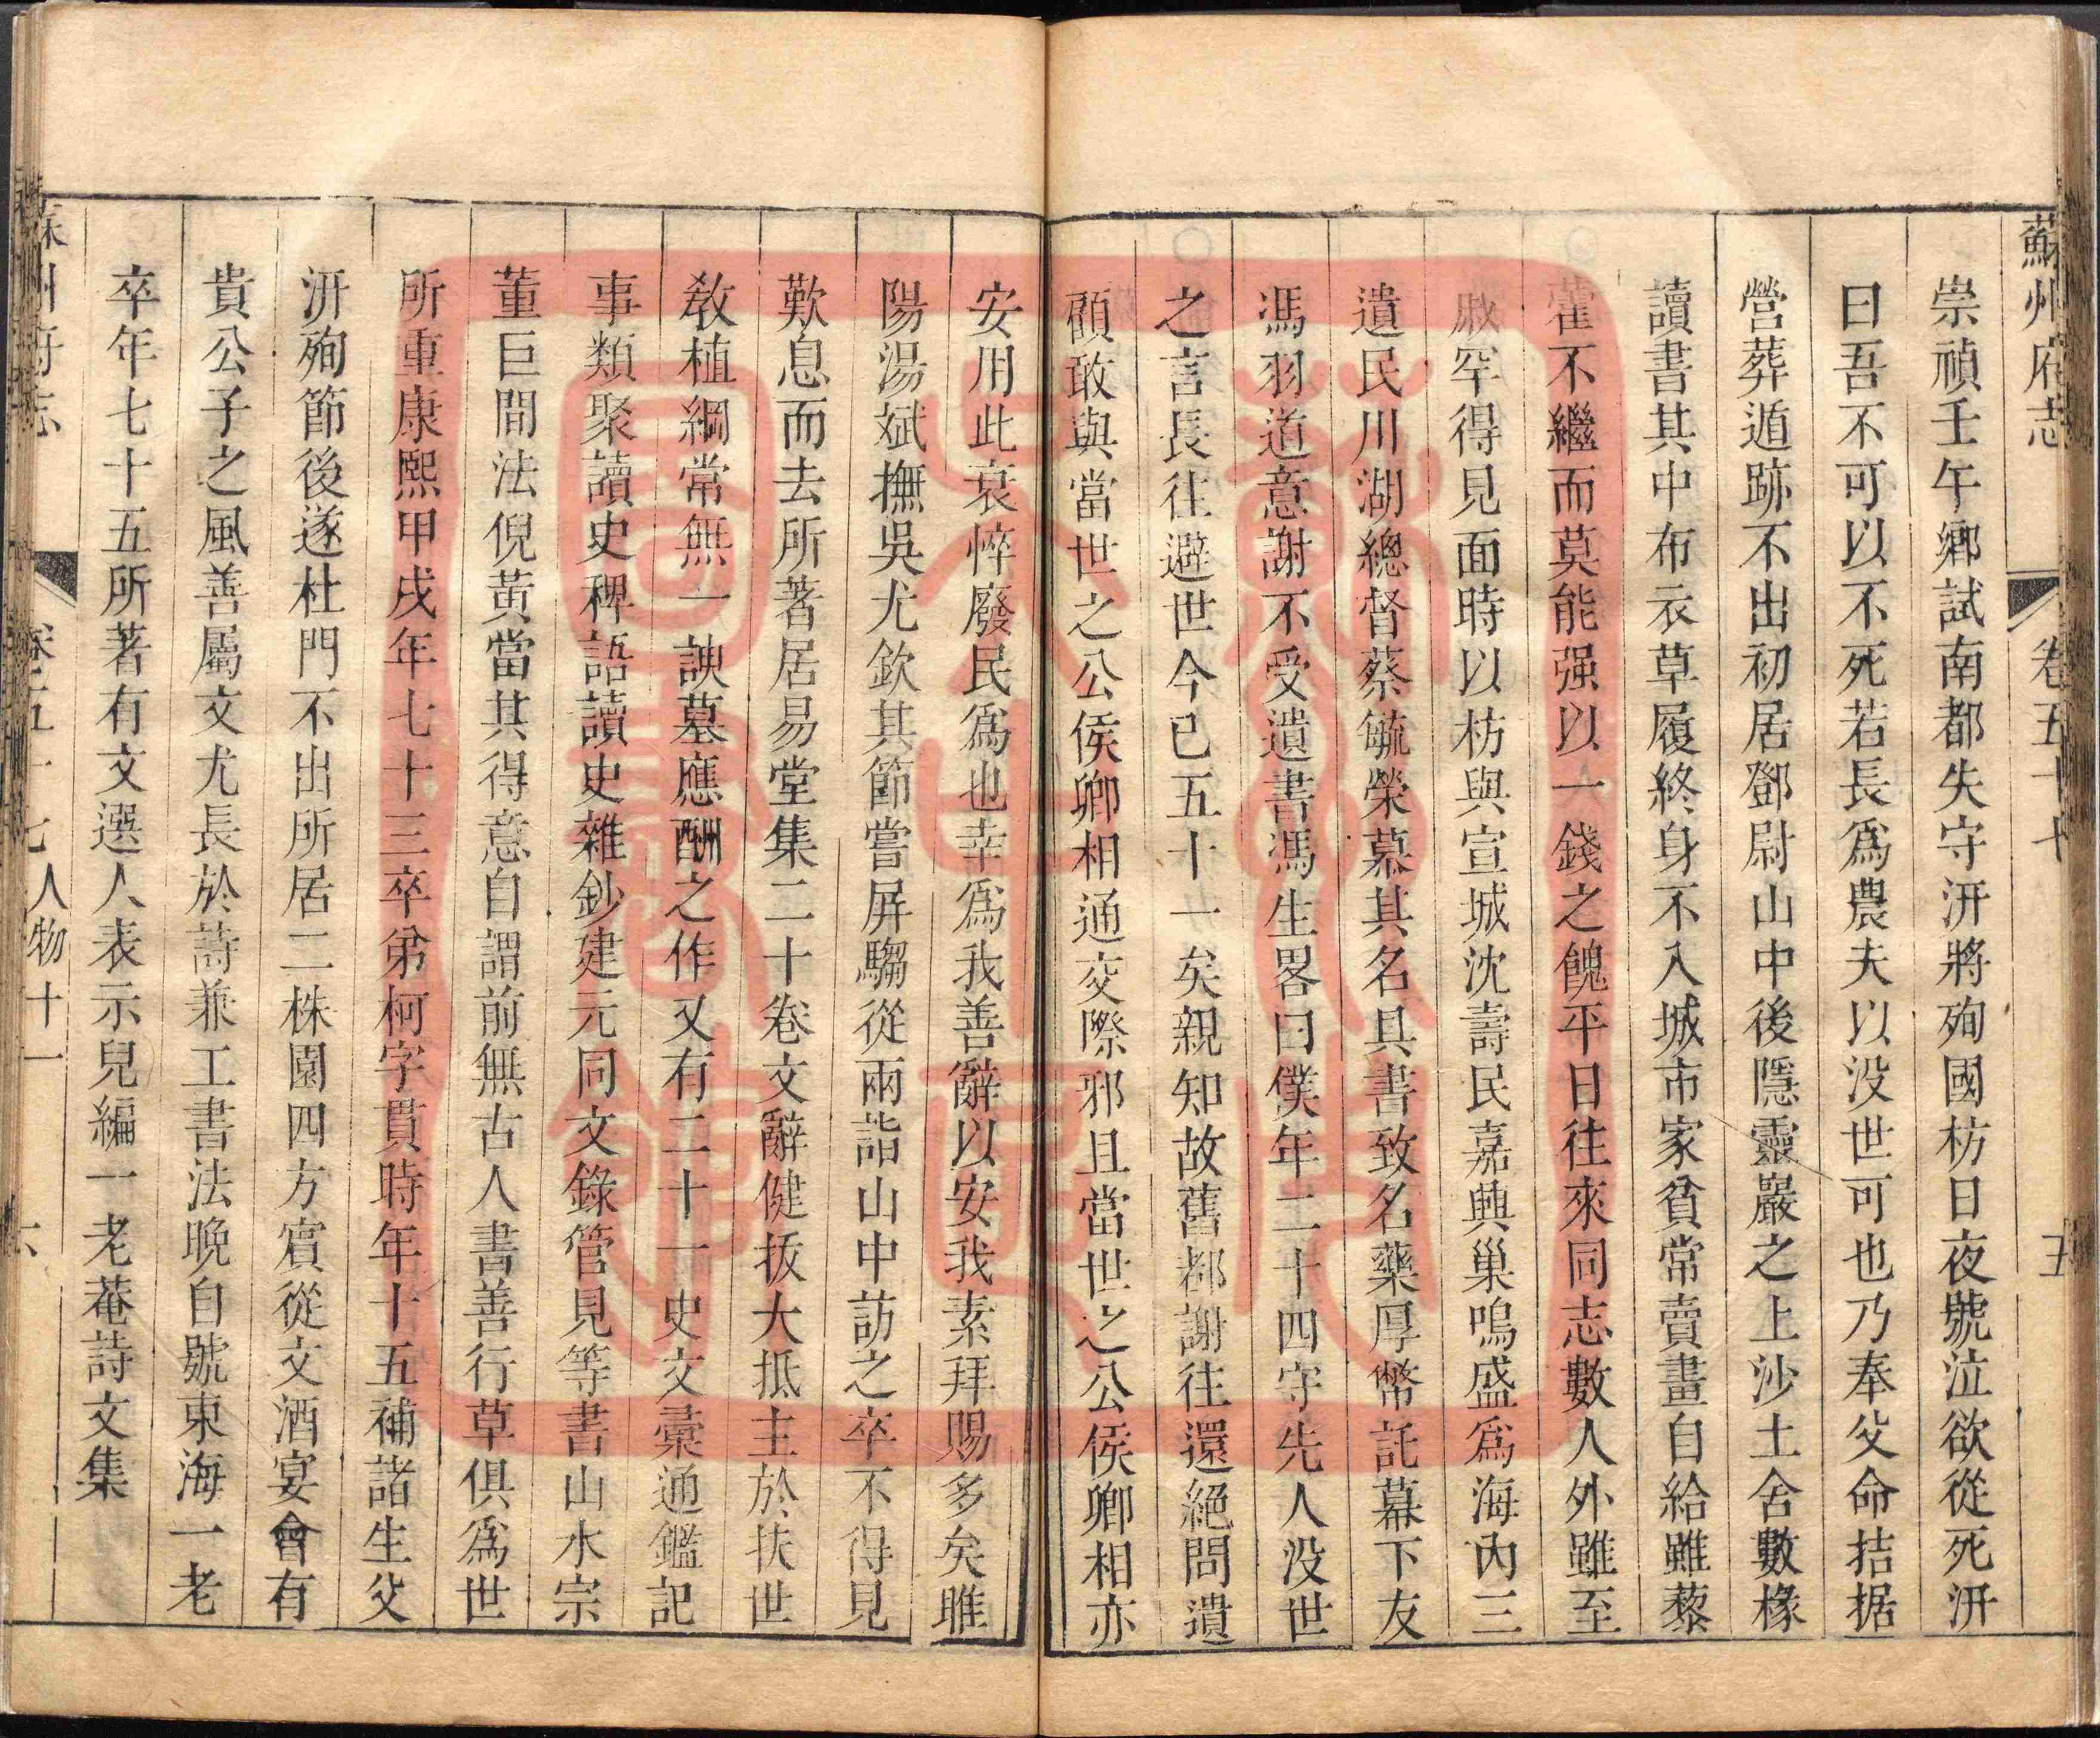 蘇州府志 卷五十七 五
崇禎壬午鄉試南都失守汧將殉國枋日夜號泣欲從死汧
曰吾不可以不死若長爲農夫以没世可也乃奉父命拮据
營葬遁跡不出初居鄧尉山中後隱靈巖之上沙土舍數椽
讀書其中布衣草履終身不入城市家貧常賣畫自給雖藜
藿不繼而莫能强以一錢之餽平日往來同志數人外雖至
戚罕得見面時以枋與宣城沈壽民嘉興巢鳴盛爲海內三
遺民川湖總督蔡毓榮慕其名具書致名藥厚幣託幕下友
馮羽道意謝不受遺書馮生畧曰僕年二十四守先人没世
之言長往避世今已五十一矣親知故舊都謝往還絕問遺
顧敢與當世之公侯卿相通交際邪且當世之公侯卿相亦
安用此衰悴廢民爲也幸爲我善辭以安我素拜賜多矣睢
陽湯斌撫吳尤欽其節嘗屏騶從兩詣山中訪之卒不得見
歎息而去所著居易堂集二十卷文辭健拔大抵主於扶世
敎植綱常無一諛墓應酬之作又有二十一史文彙通鑑記
事類聚讀史稗語讀史雜鈔建元同文錄管見等書山水宗
董巨間法倪黃當其得意自謂前無古人書善行草俱爲世
所重康熙甲戌年七十三卒弟柯字貫時年十五補諸生父
汧殉節後遂杜門不出所居二株園四方賓從文酒宴會有
貴公子之風善屬文尤長於詩兼工書法晚自號東海一老
卒年七十五所著有文選人表示兒編一老菴詩文集
蘇州府志 卷五十七 人物十一 六